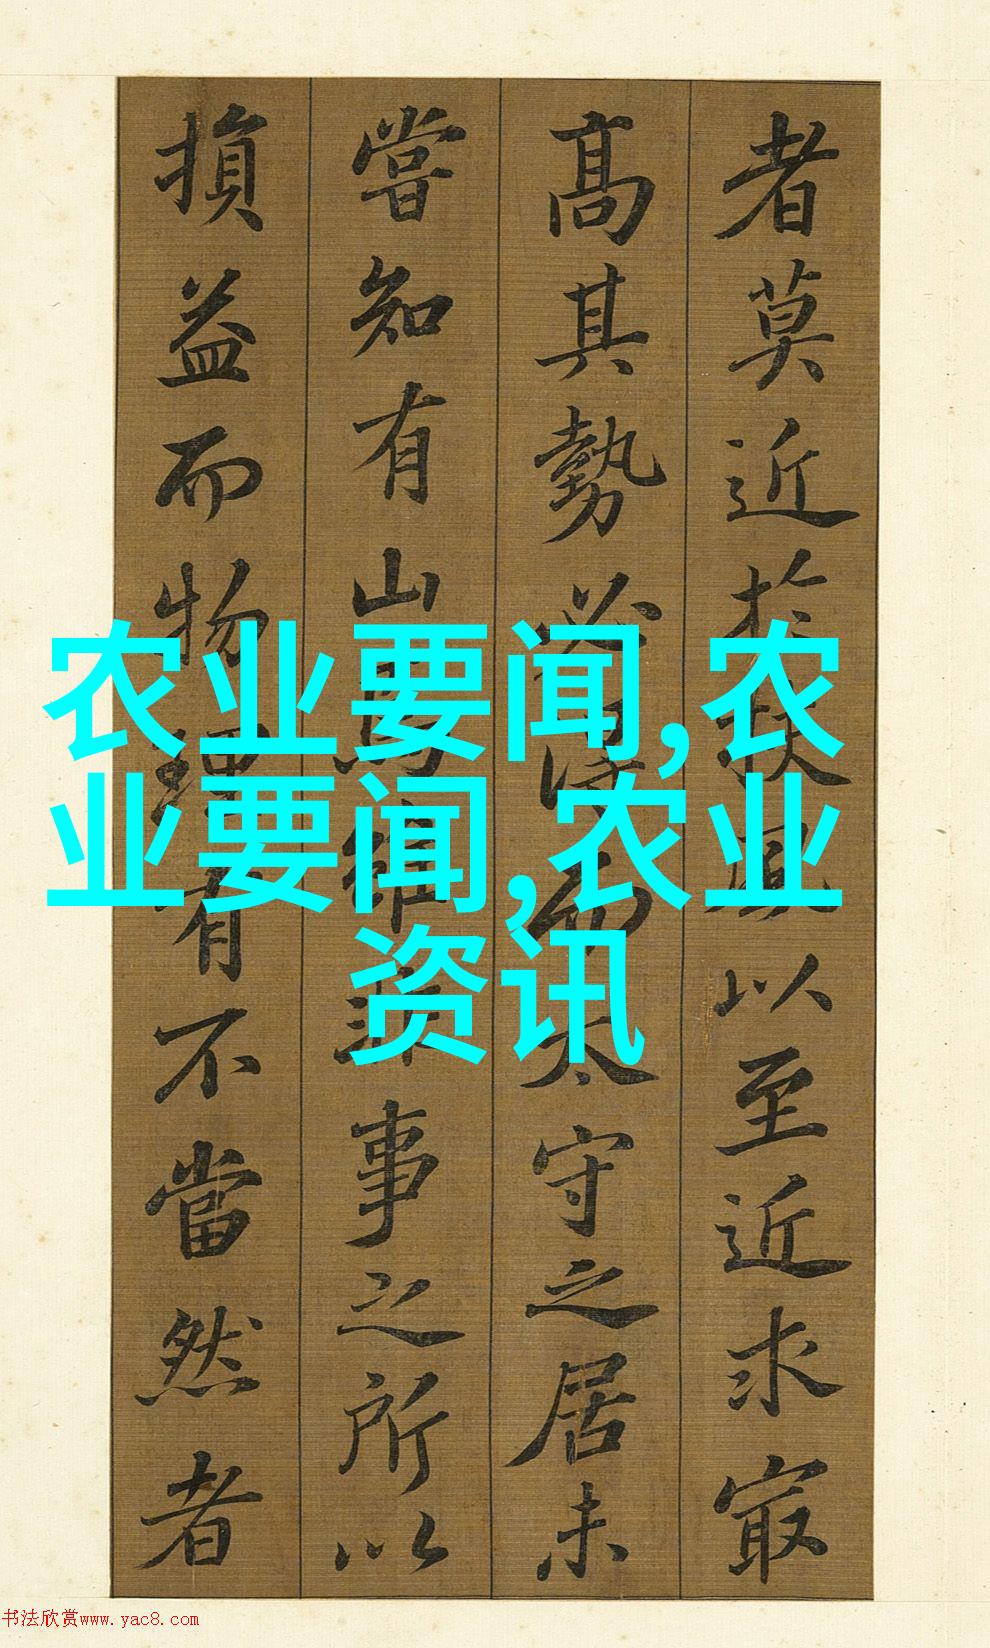 者莫近於扶風以至近求最
高其勢必得而太守之居未
嘗知有山焉雖非事之所以
損益而物理有不當然者
农业要闻,农
业要闻,农业
资讯
书法欣赏www.yac8.com